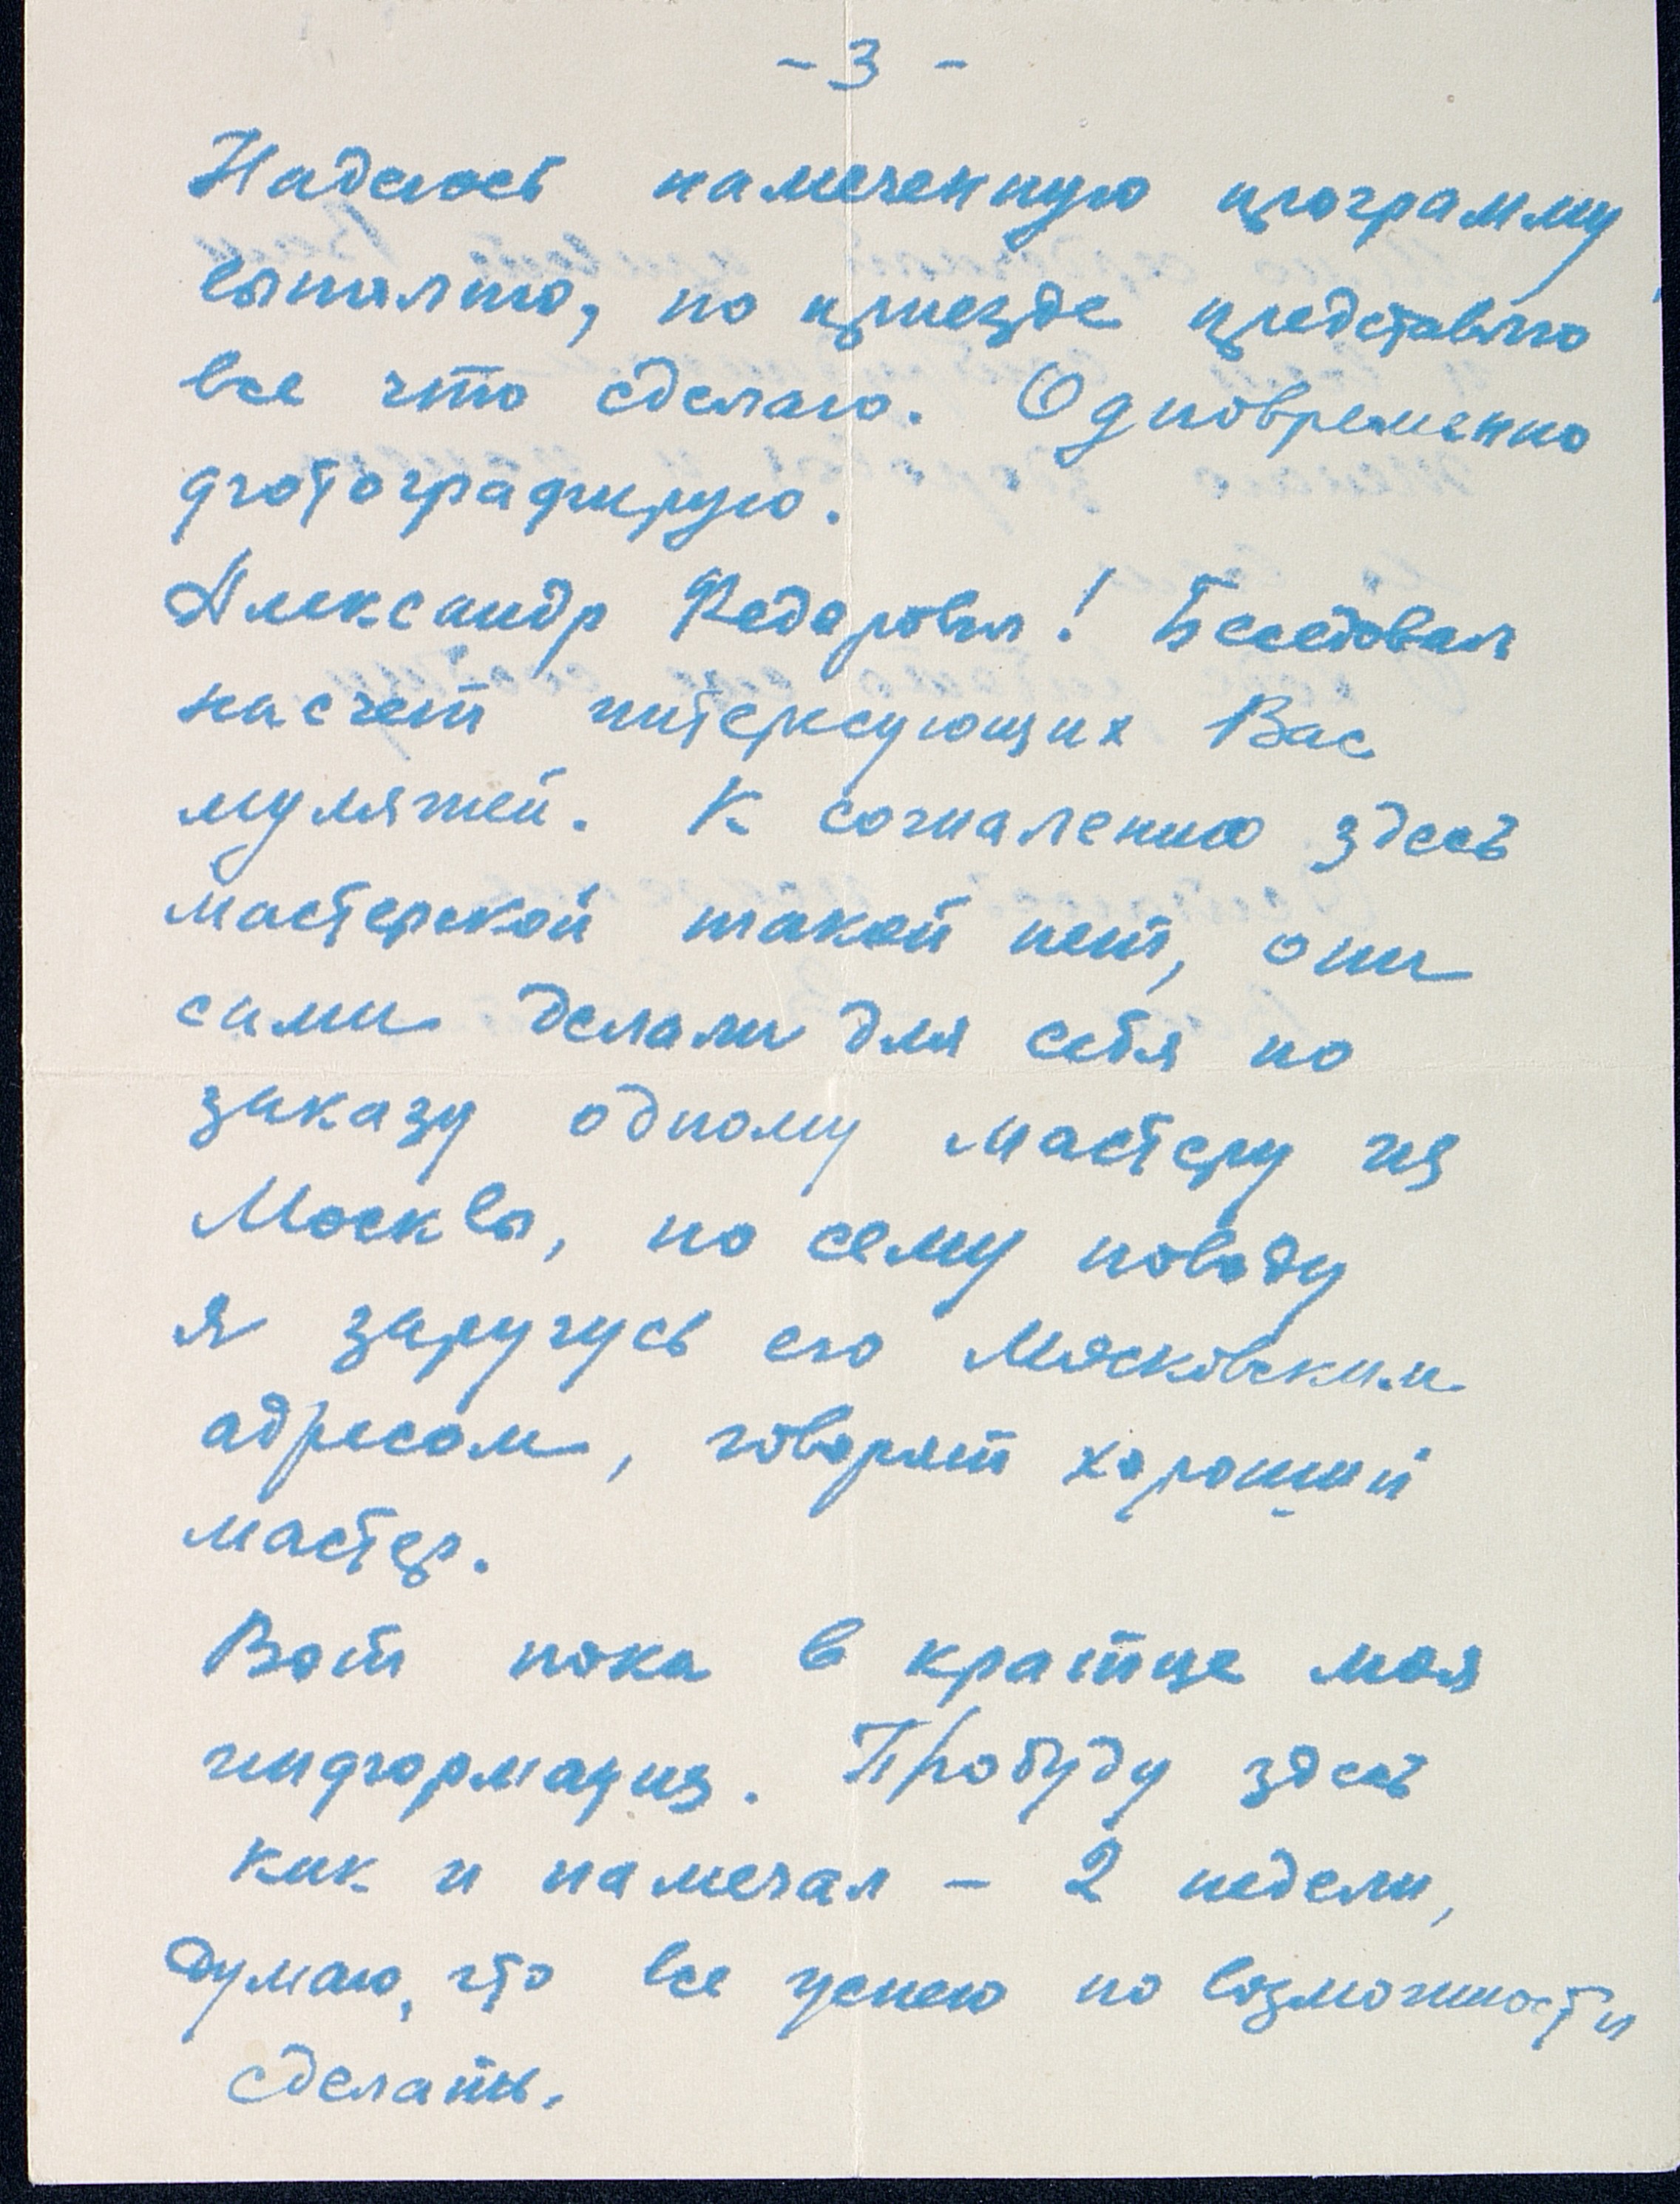 - 3 -
Надеюсь намеченную программу
выполню, по приезде представлю
все что сделаю. Одновременно
фотографирую.
Александр Федорович! Беседовал
насчет интересующих Вас
муляжей. К сожалению здесь
мастерской такой нет, они
сами делали для себя по
заказу одному мастеру из
Москвы, по сему поводу
я заручусь его Московским
адресом, говорят хороший
мастер.
Вот пока в кратце моя
информация. Пробуду здесь
как и намечал - 2 недели,
думаю, что все успею по возможности
сделать.